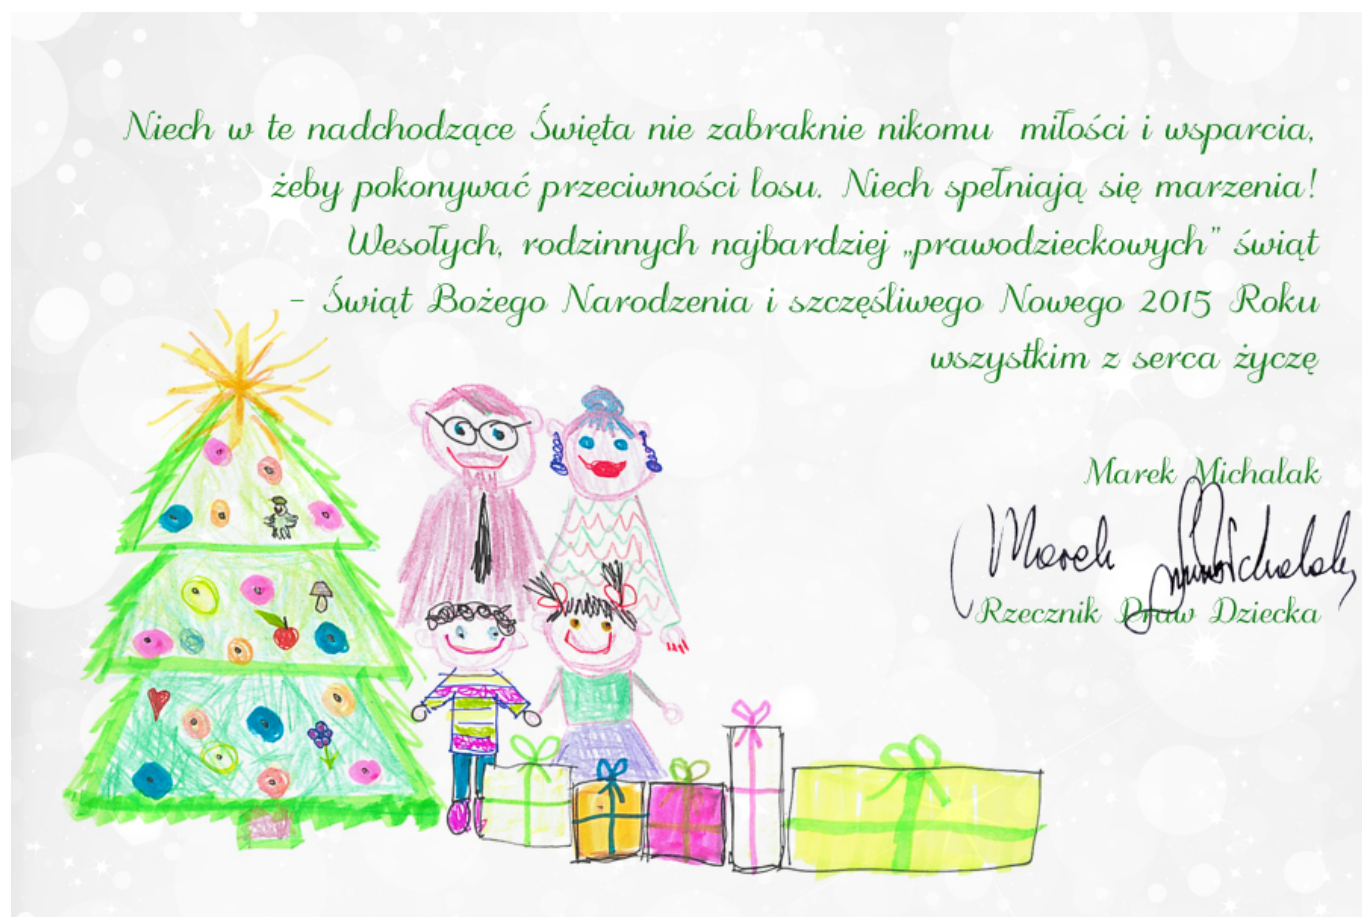 Niech w te nadchodzące Święta nie zabraknie nikomu miłości i wsparcia,
żeby pokonywać przeciwności losu. Niech spełniają się marzenia!
Wesołych, rodzinnych najbardziej „prawodzieckowych” świąt
- Świąt Bożego Narodzenia i szczęśliwego Nowego 2015 Roku
wszystkim z serca życzę
Marek Michalak
Marek Michalak
Rzecznik Praw Dziecka